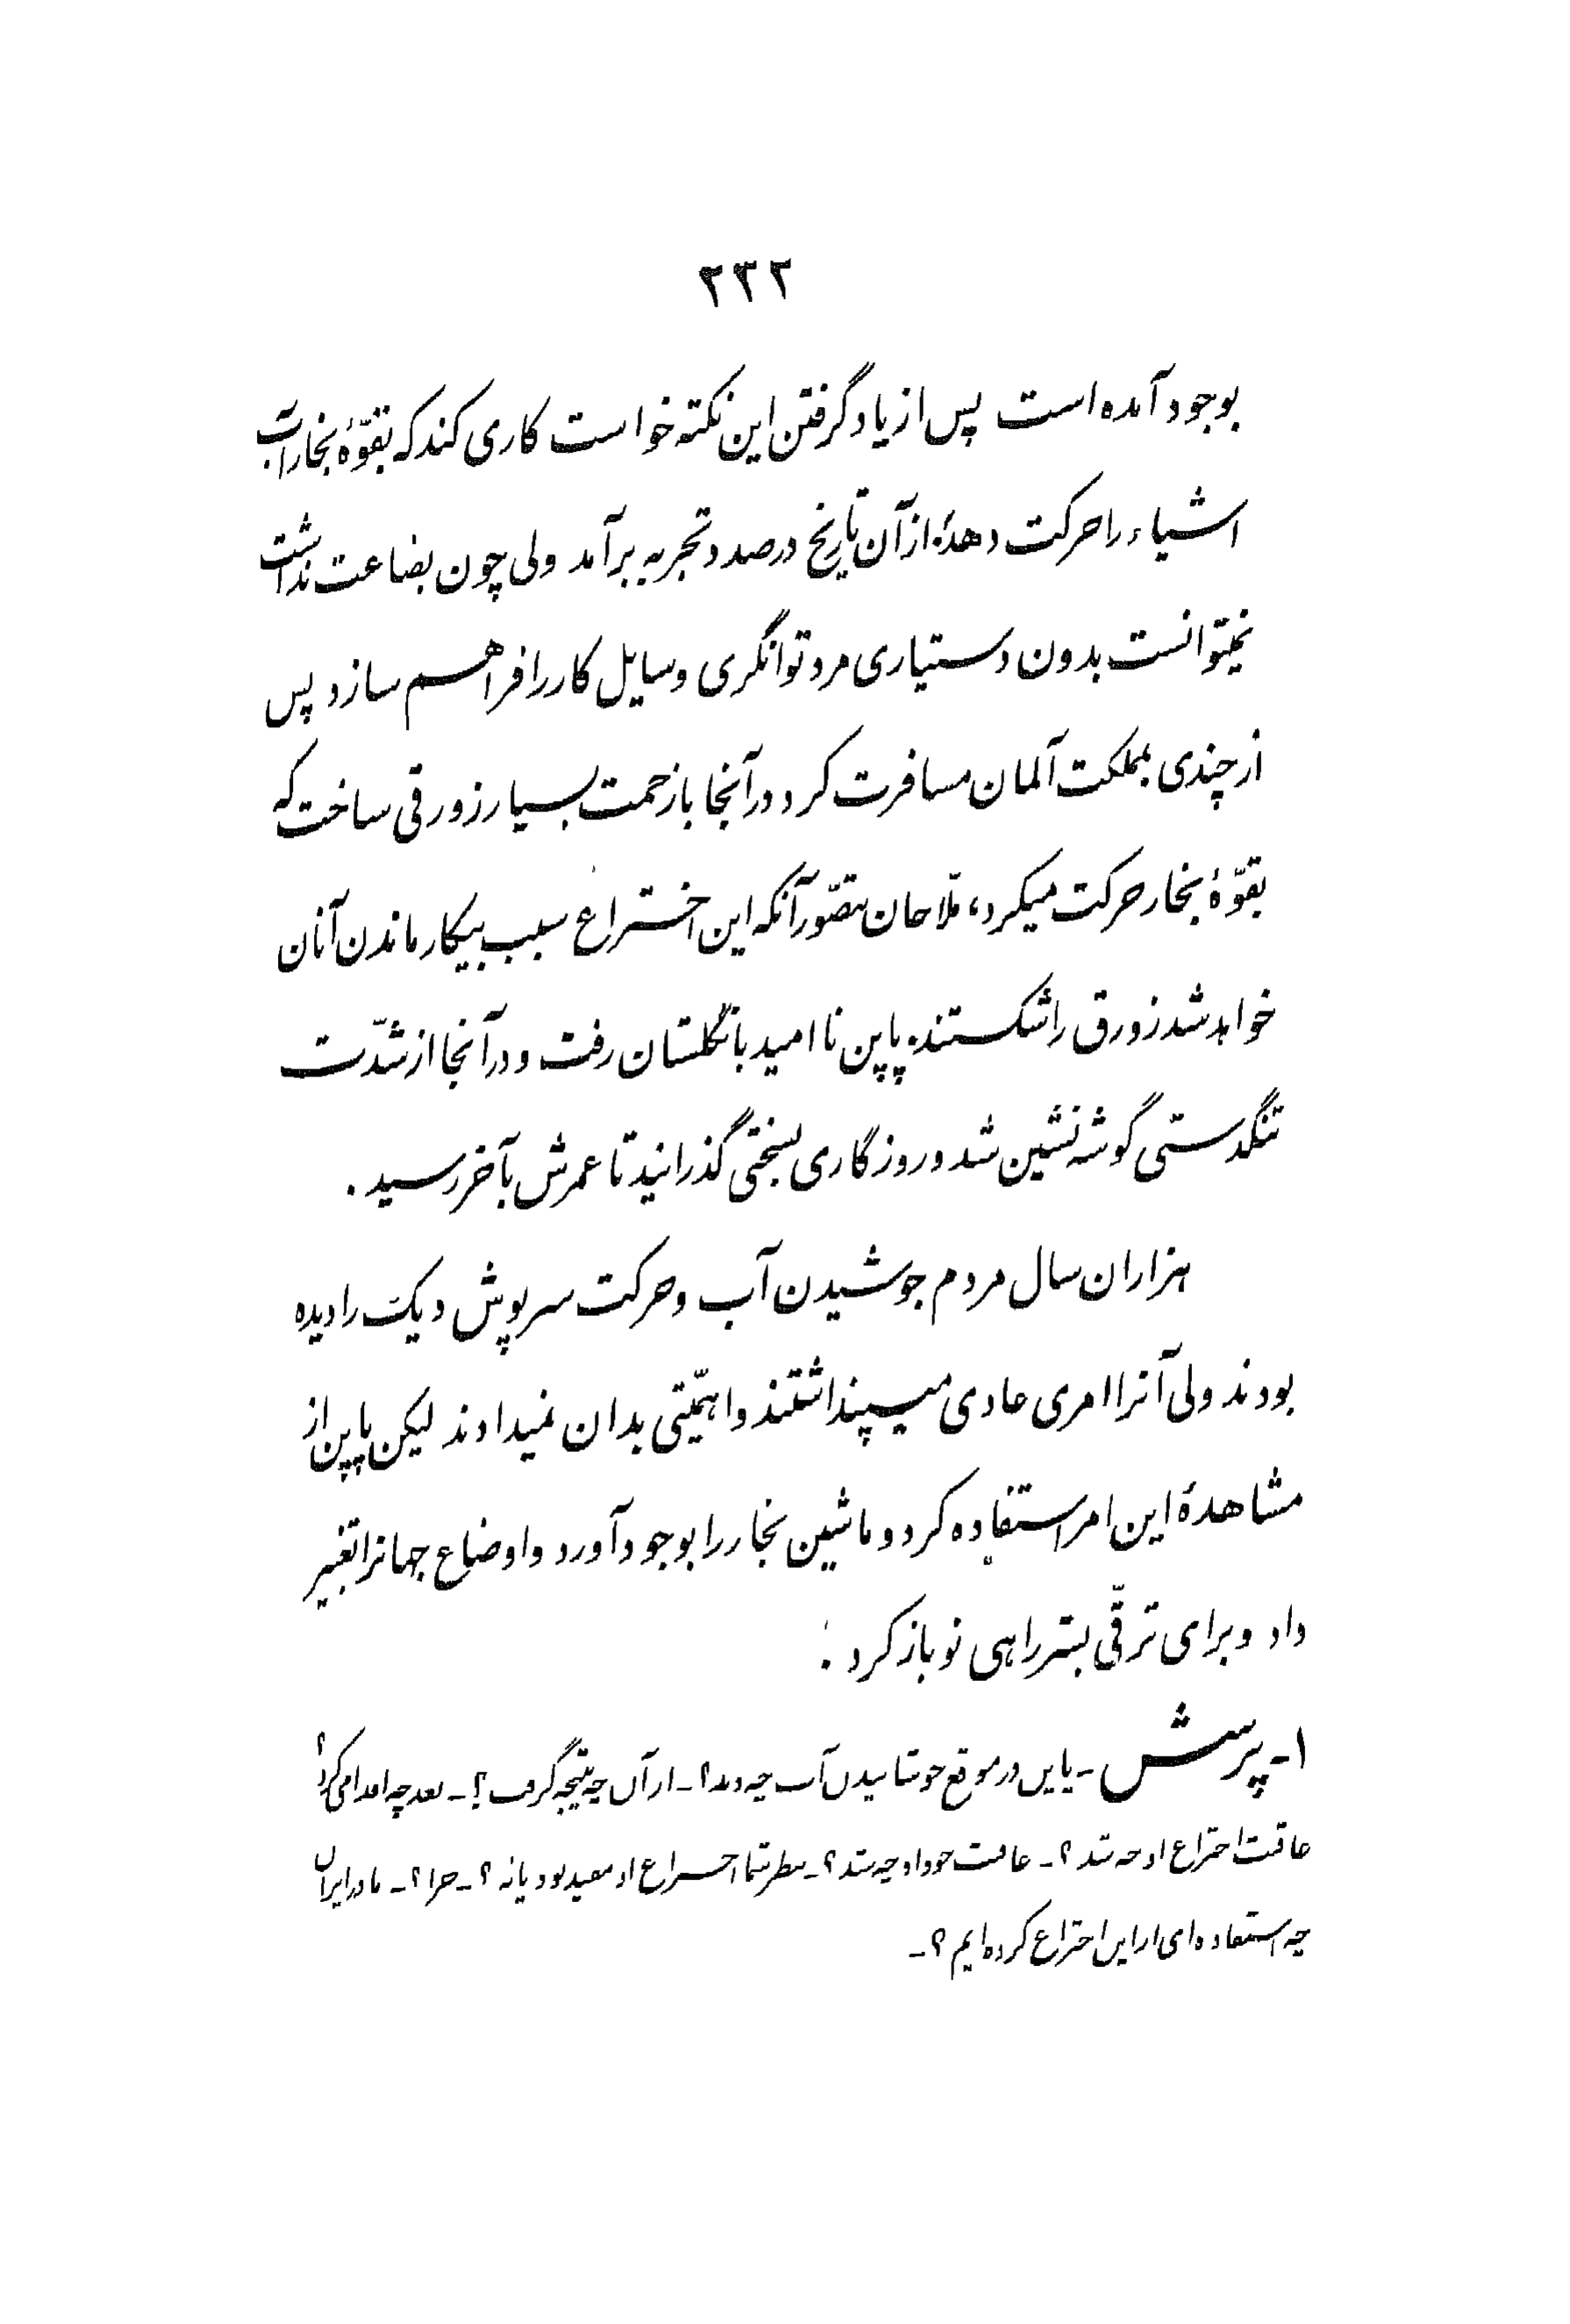 ۲۳۲
بوجود آمده است پس از یاد گرفتن این نکته خواست کاری کند که بقوّهٔ بخار آب
اشیاء را حرکت دهد. از آن تاریخ درصدد تجربه برآمد ولی چون بضاعت نداشت
نمیتوانست بدون دستیاری مرد توانگری وسایل کار را فراهم سازد پس
از چندی بمملکت آلمان مسافرت کرد در آنجا با زحمت بسیار زورقی ساخت که
بقوّهٔ بخار حرکت میکرد، ملّاحان بتصوّر آنکه این اختراع سبب بیکار ماندن آنان
خواهد شد زورق را شکستند. پاپن ناامید بانگلستان رفت و در آنجا از شدّت
تنگدستی گوشه نشین شد و روزگاری بسختی گذرانید تا عمرش بآخر رسید.
هزاران سال مردم جوشیدن آب و حرکت سرپوش دیک را دیده
بودند ولی آنرا امری عادی میپنداشتند و اهمّیتی بدان نمیدادند لیکن پاپن از
مشاهدهٔ این امر استفاده کرد و ماشین بخار را بوجود آورد و اوضاع جهانرا تغییر
داد و برای ترقّی بشر راهی نو باز کرد.
۱- پرسش - پاپن در موقع جوشانیدن آب چه دید؟ - از آن چه نتیجه گرفت؟ - بعد چه اقدامی کرد؟
عاقبت اختراع او چه شد؟ - عاقبت خود او چه شد؟ - بنظر شما اختراع او مفید بود یا نه؟ - چرا؟ - ما در ایران
چه استفاده‌ای از این اختراع کرده‌ایم؟ -